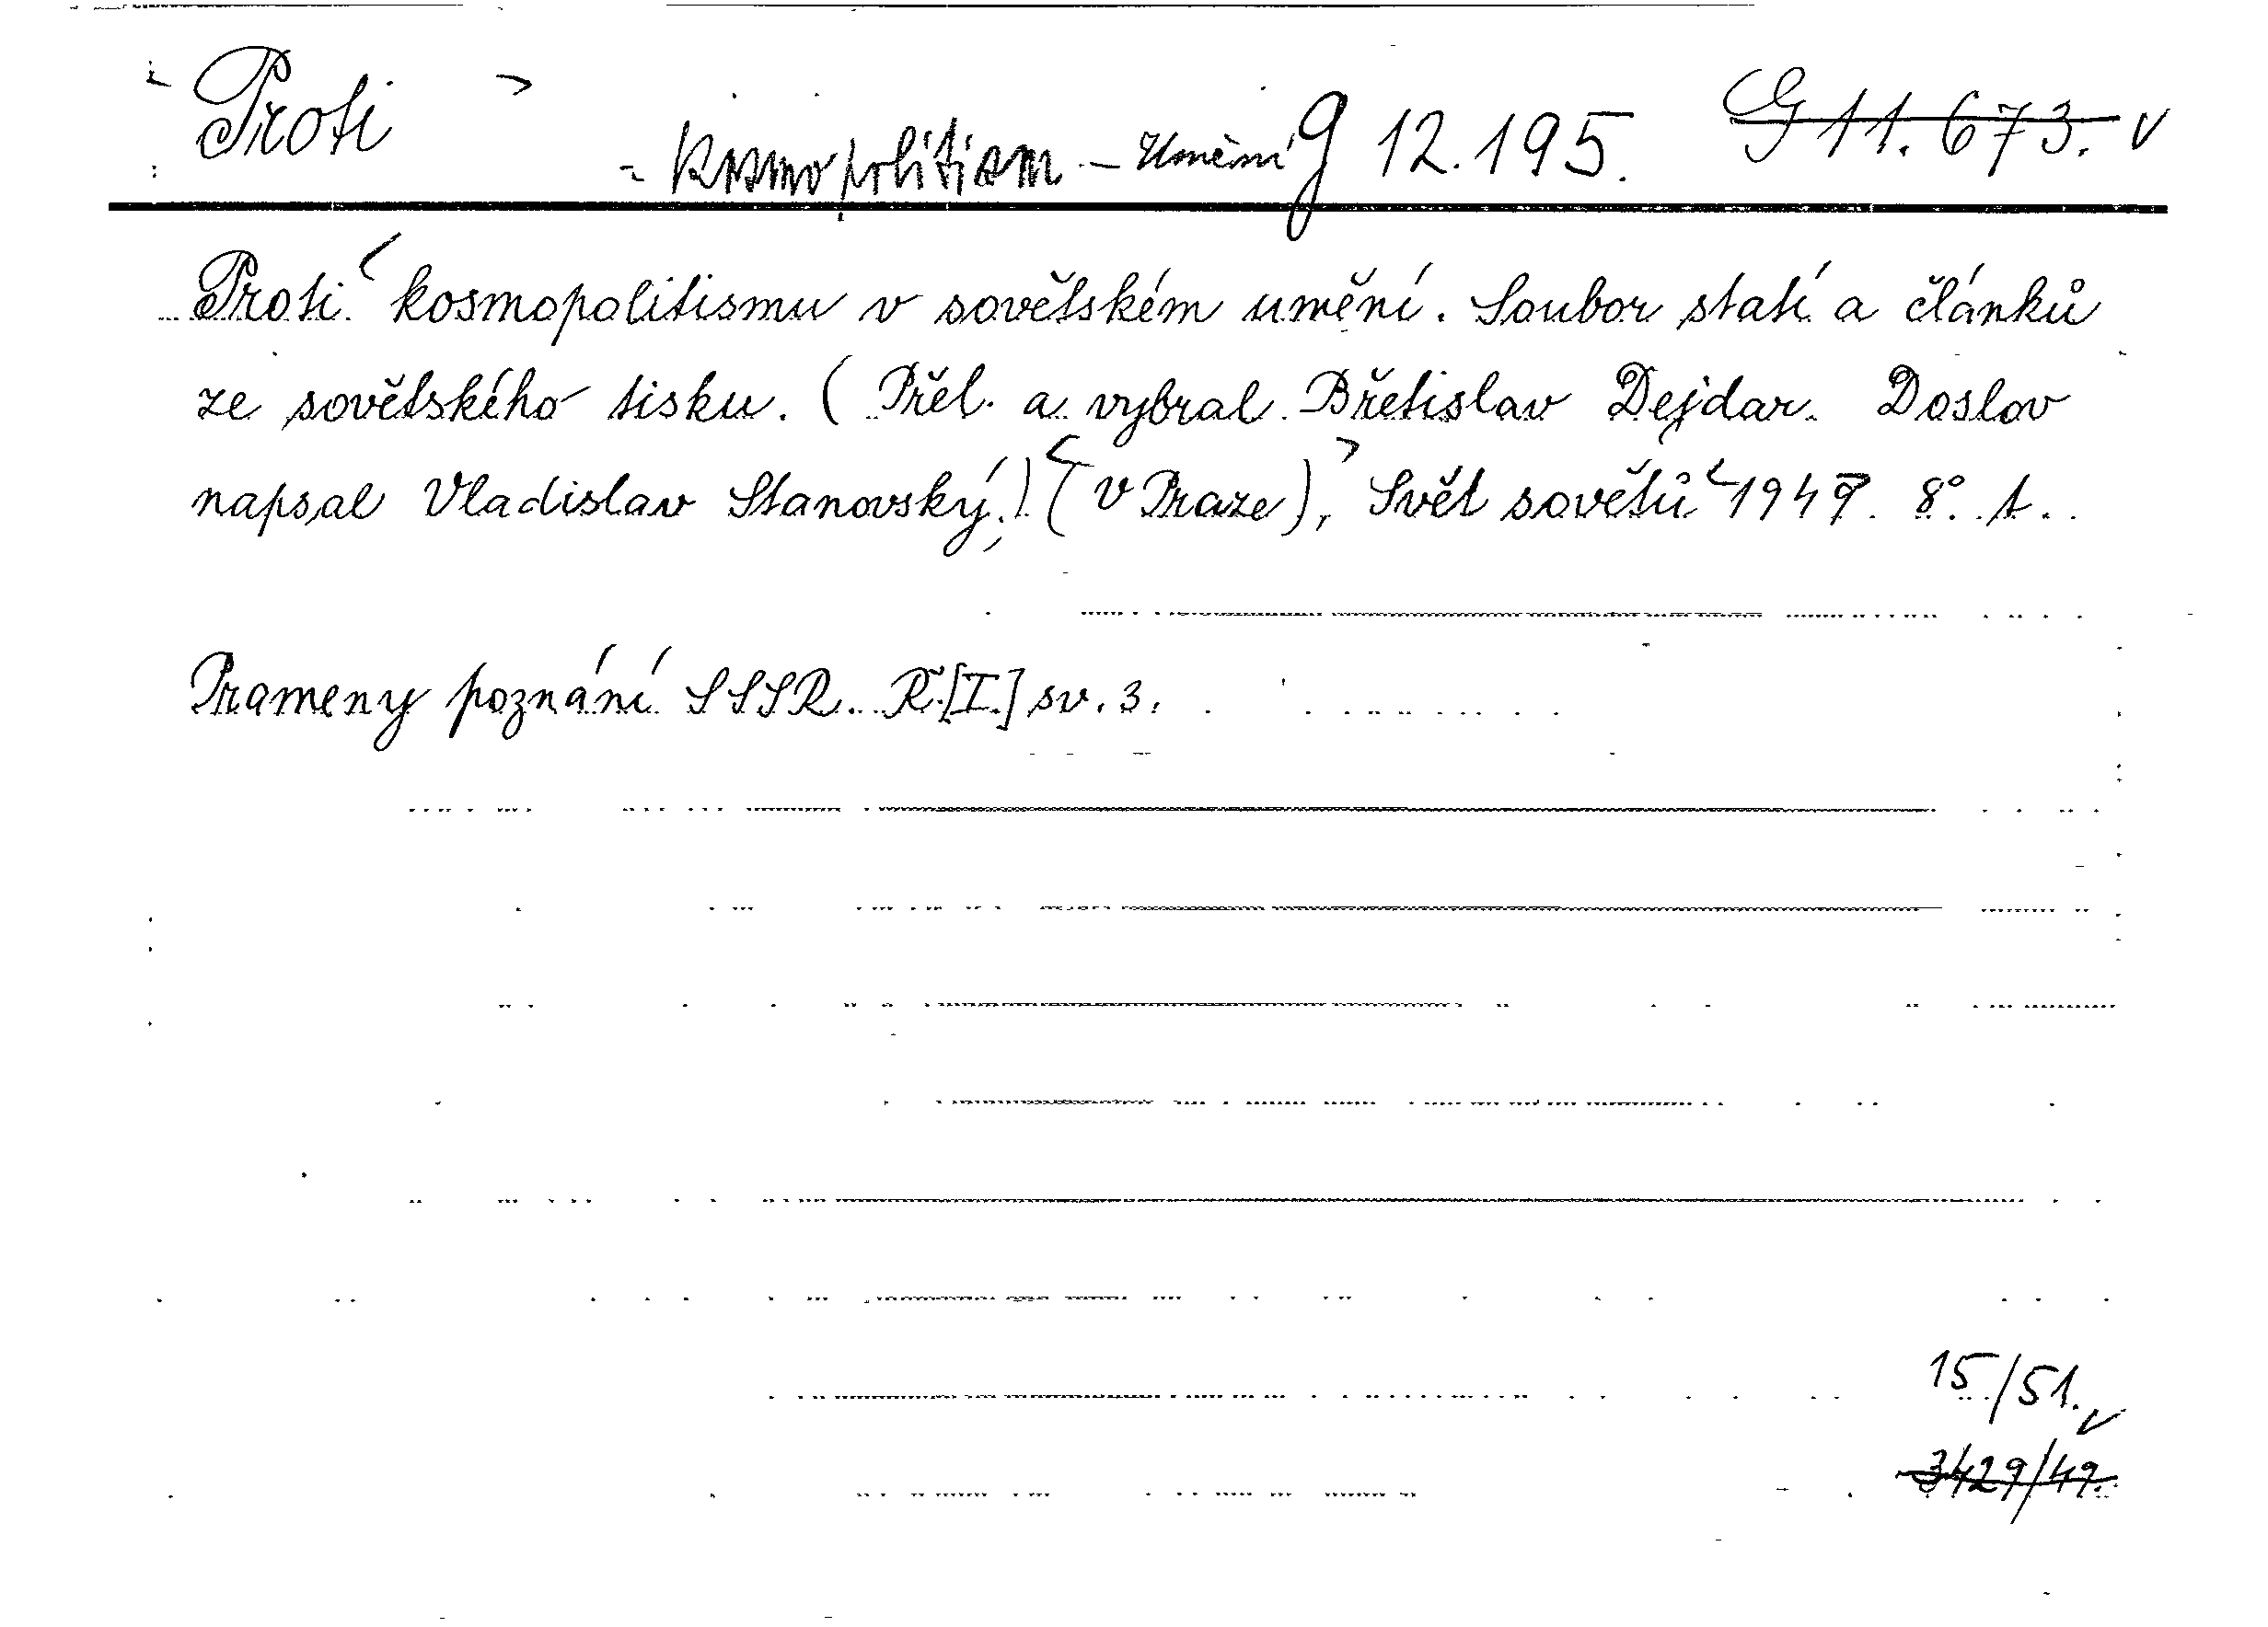 Proti - kosmopolitism - Umění g 12.195. G 11.673. v
Proti kosmopolitismu v sovětském umění. Soubor statí a článků
ze sovětského tisku. (Přel. a vybral Břetislav Dejdar. Doslov
napsal Vladislav Stanovský.) (V Praze), Svět sovětů 1949. 8°. 1.
Prameny poznání SSSR. Ř.[I.] sv. 3.
15/51. v
3429/49.